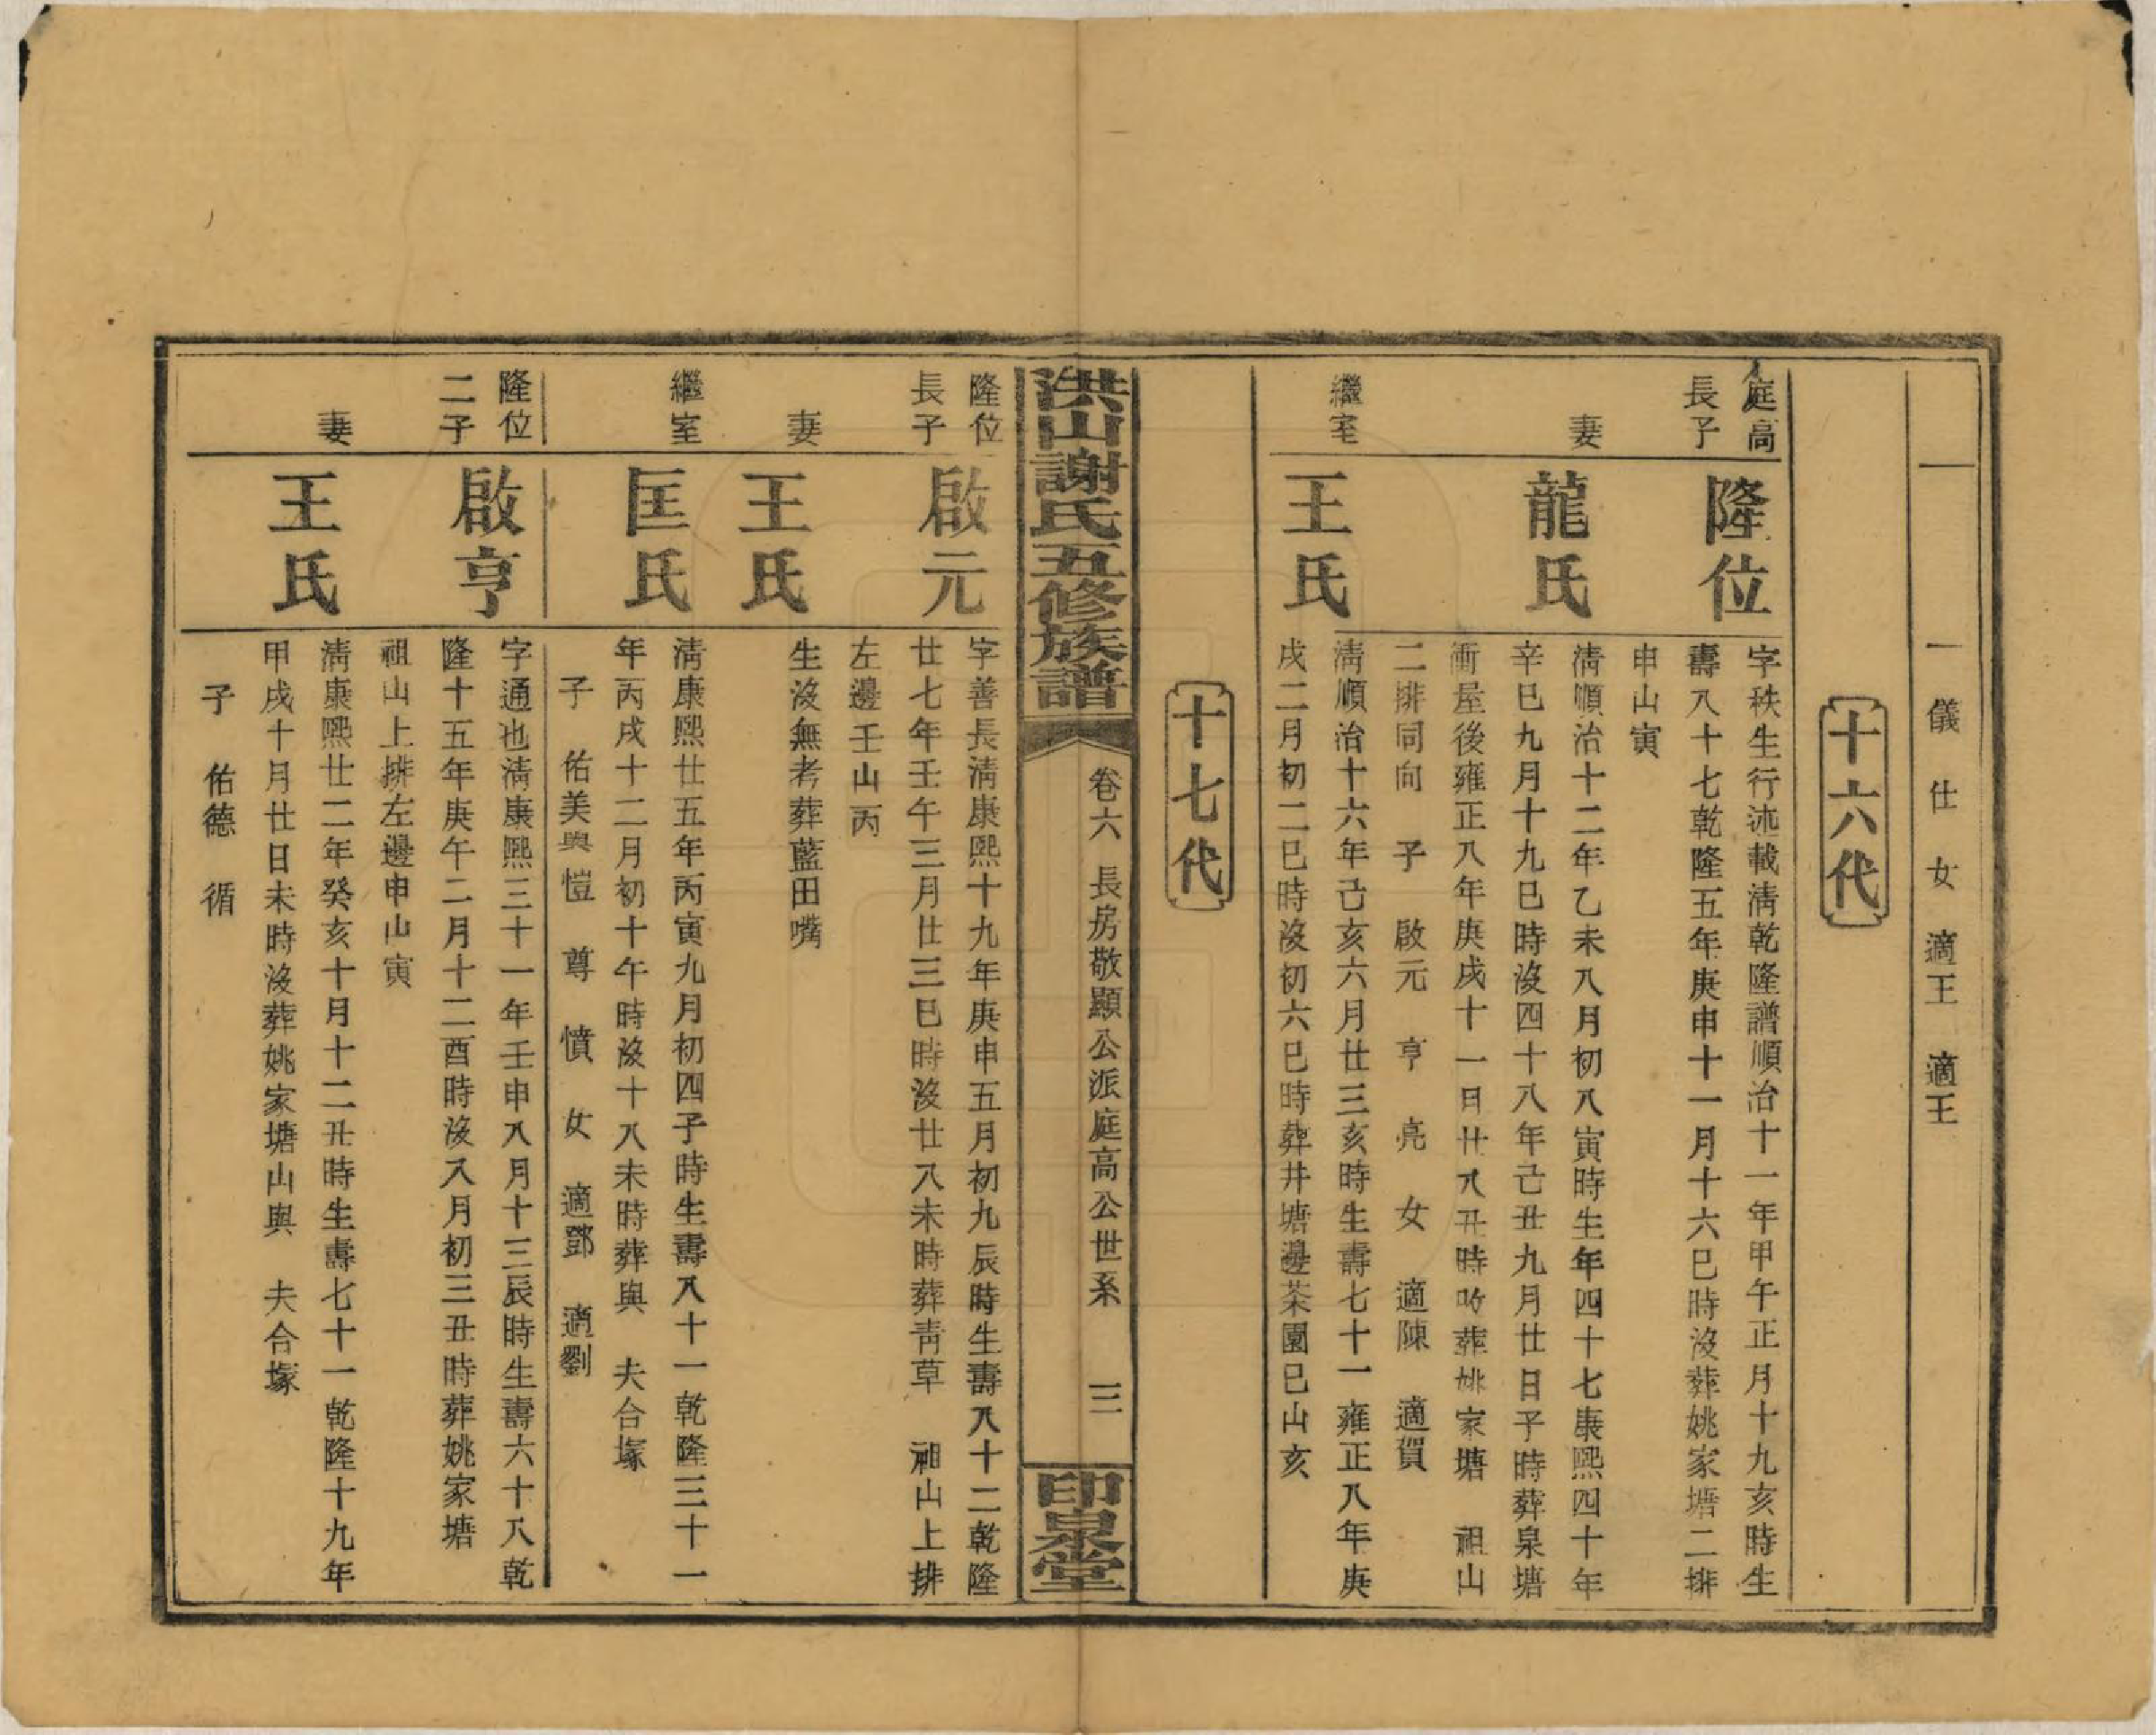 一儀　仕　女　適王　適王
十六代
庭高
長子
隆位
字秩生行述載淸乾隆譜順治十一年甲午正月十九亥時生
壽八十七乾隆五年庚申十一月十六巳時沒葬姚家塘二排
申山寅
妻
龍氏
淸順治十二年乙未八月初八寅時生年四十七康熙四十年
辛巳九月十九巳時沒四十八年己丑九月廿日子時葬泉塘
衝屋後雍正八年庚戌十一日廿八丑時改葬姚家塘　祖山
二排同向　子　啟元　亨　亮　女　適陳　適賀
繼室
王氏
淸順治十六年己亥六月廿三亥時生壽七十一雍正八年庚
戌二月初二巳時沒初六巳時葬井塘邊茶園巳山亥
十七代
洪山謝氏五修族譜
卷六　長房敬顯公派庭高公世系　三
印泉堂
隆位
長子
啟元
字善長淸康熙十九年庚申五月初九辰時生壽八十二乾隆
廿七年壬午三月廿三巳時沒廿八未時葬靑草　祖山上排
左邊壬山丙
妻
王氏
生沒無考葬藍田嘴
繼室
匡氏
淸康熙廿五年丙寅九月初四子時生壽八十一乾隆三十一
年丙戌十二月初十午時沒十八未時葬與　夫合塚
子　佑美與愷　尊　憤　女　適鄧　適劉
隆位
二子
啟亨
字通也淸康熙三十一年壬申八月十三辰時生壽六十八乾
隆十五年庚午二月十二酉時沒八月初三丑時葬姚家塘
祖山上排左邊申山寅
妻
王氏
淸康熙廿二年癸亥十月十二丑時生壽七十一乾隆十九年
甲戌十月廿日未時沒葬姚家塘山與　夫合塚
子　佑德　循